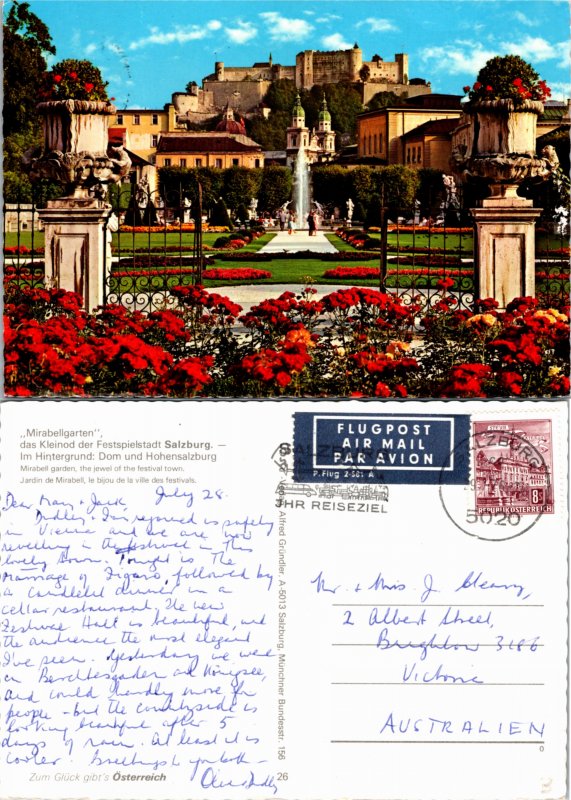 „Mirabellgarten",
das Kleinod der Festspielstadt Salzburg. —
Im Hintergrund: Dom und Hohensalzburg
Mirabell garden, the jewel of the festival town.
Jardin de Mirabell, le bijou de la ville des festivals.
Dear Mary & Jack July 28.
Dudley & I are rejoined safely
in Vienna and we are now
revelling in the festival in this
lovely town. Tonight is The
Marriage of Figaro, followed by
a candlelit dinner in a
cellar restaurant. The new
Festival Hall is beautiful, and
the audience the most elegant
I've seen. Yesterday we were
in Berchtesgaden and Königsee,
and could hardly move for
people - but the countryside is
looking beautiful after 5
days of rain. At least it is
cooler. Greetings to you both -
Dudley
Zum Glück gibt's Österreich
26
Alfred Gründler, A-5013 Salzburg, Münchner Bundesstr. 156
FLUGPOST
AIR MAIL
PAR AVION
P. Flug 2-581 A
SALZBURG
IHR REISEZIEL
SALZBURG
5020
8S
REPUBLIK ÖSTERREICH
Mr. & Mrs. J. Cleary,
2 Albert Street,
Brighton 3186
Victoria
AUSTRALIEN